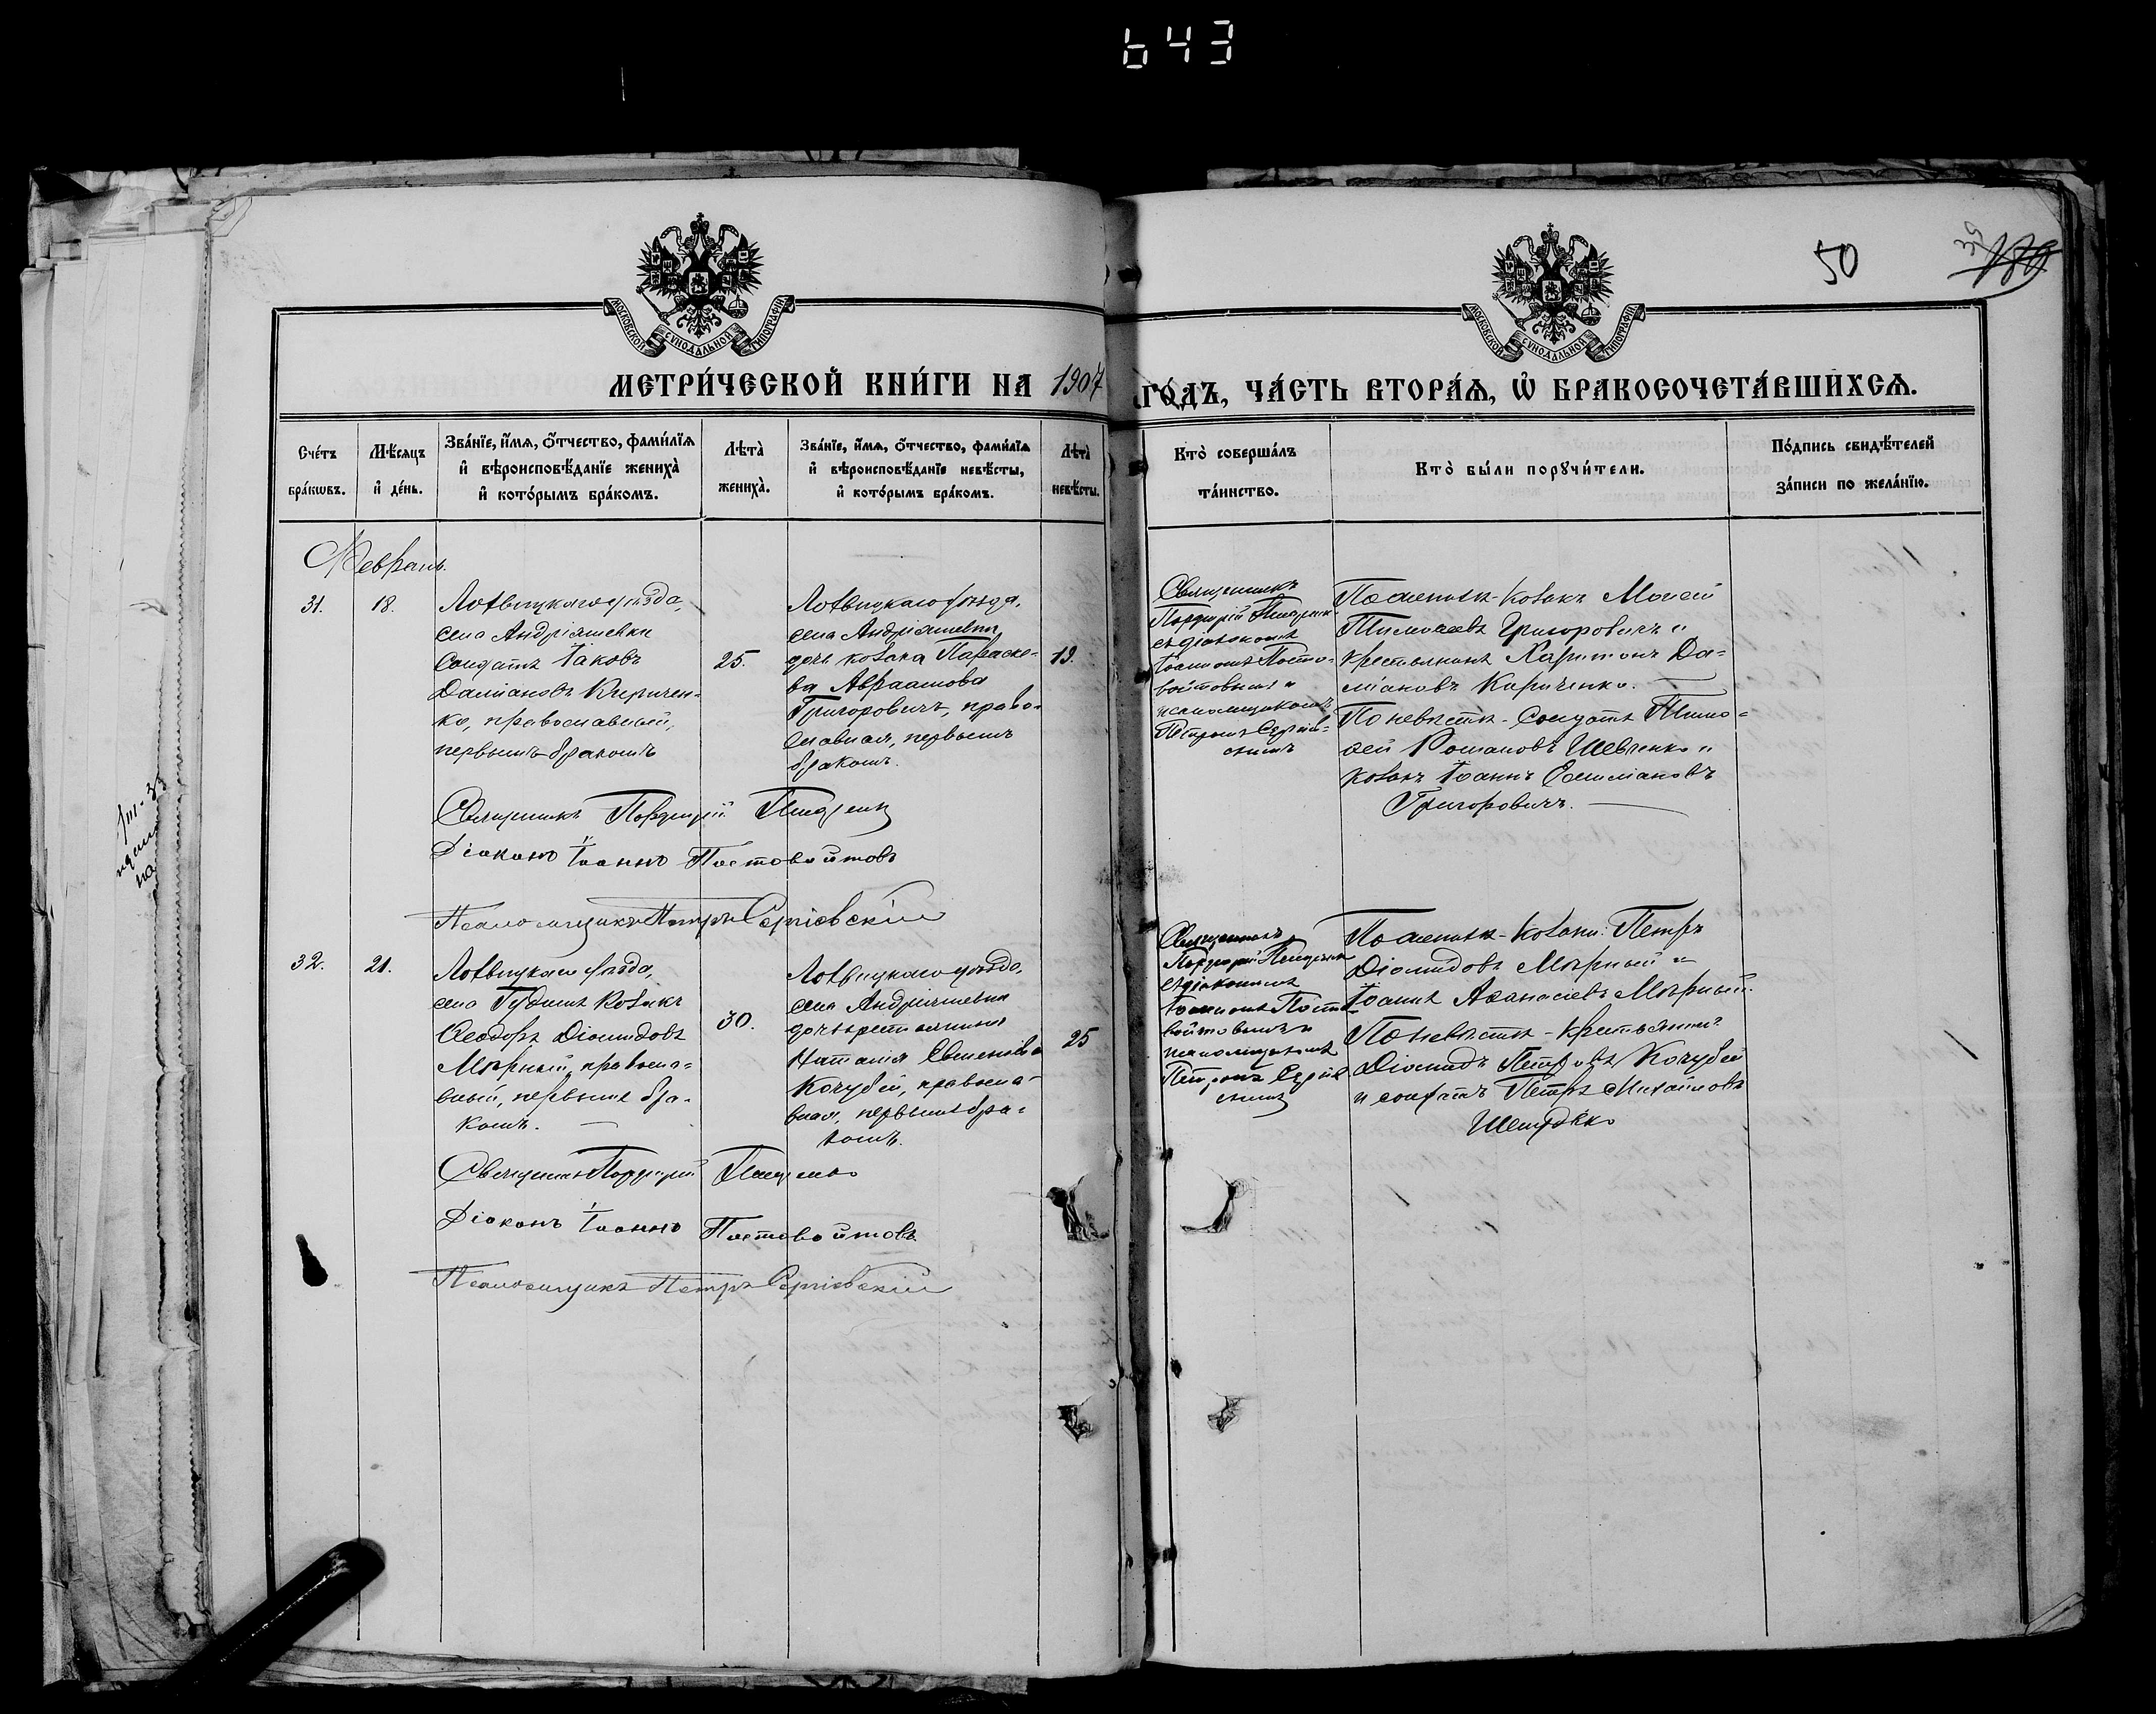 643
50
39
180
МОСКОВСКОЙ СѴНОДАЛЬНОЙ ТИПОГРАФІИ
МОСКОВСКОЙ СѴНОДАЛЬНОЙ ТИПОГРАФІИ
МЕТРИ́ЧЕСКОЙ КНИ́ГИ НА 1907 ГО́ДЪ, ЧА́СТЬ ВТОРА́Ѧ, Ѡ҆ БРАКОСОЧЕТА́ВШИХСѦ.
Сче́тъ бра́кѡвъ.
Мѣ́сѧцъ и҆ де́нь.
Зва́нїе, и҆́мѧ, ѻ҆́тчество, фами́лїѧ
и҆ вѣроисповѣ́данїе жениха̀
и҆ кото́рымъ бра́комъ.
Лѣта̀ жениха̀.
Зва́нїе, и҆́мѧ, ѻ҆́тчество, фами́лїѧ
и҆ вѣроисповѣ́данїе невѣ́сты,
и҆ кото́рымъ бра́комъ.
Лѣта̀ невѣ́сты.
Кто̀ соверша́лъ
та́инство.
Кто̀ бы́ли порꙋчи́тели.
По́дпись свидѣ́телей
за́писи по жела́нїю.
Февраль.
31.
18.
Лохвицкаго уѣзда,
села Андріяшевки
Солдатъ Іаковъ
Даміановъ Киричен-
ко, православный,
первымъ бракомъ
25.
Лохвицкаго уѣзда,
села Андріяшевки
дочь козака Параске-
ва Авраамова
Григоровичъ, право-
славная, первымъ
бракомъ.
19.
Священникъ
Порфирій
съ діакономъ
Іоанномъ Посто-
войтовымъ и
псаломщикомъ
Петромъ Сергіев-
скимъ
По женихѣ - Козакъ Моисей
Тимофеевъ Григоровичъ и
крестьянинъ Харитонъ Да-
міановъ Кириченко.
По невѣстѣ - Солдатъ Тимо-
фей Романовъ Шевченко и
козакъ Іоаннъ
Григоровичъ.
Священникъ Порфирій
Діаконъ Іоаннъ Постовойтовъ
Псаломщикъ Петръ Сергіевскій
32.
21.
Лохвицкаго уѣзда,
села Козакъ
Ѳеодоръ Діомидовъ
Мѣрный, правосла-
вный, первымъ бра-
комъ.
30.
Лохвицкаго уѣзда,
села Андріяшевки
дочь крестьянина
Наталія Евменова
Кочубей, правосла-
вная, первымъ бра-
комъ.
25
Священникъ
Порфирій
съ діакономъ
Іоанномъ Посто-
войтовымъ и
псаломщикомъ
Петромъ Сергіев-
скимъ
По женихѣ - Козаки: Петръ
Діомидовъ Мѣрный и
Іоаннъ Аѳанасіевъ Мѣрный.
По невѣстѣ - крестьянинъ
Діомидъ Петровъ Кочубей
и солдатъ Петръ Михайловъ
Священникъ Порфирій
Діаконъ Іоаннъ Постовойтовъ
Псаломщикъ Петръ Сергіевскій